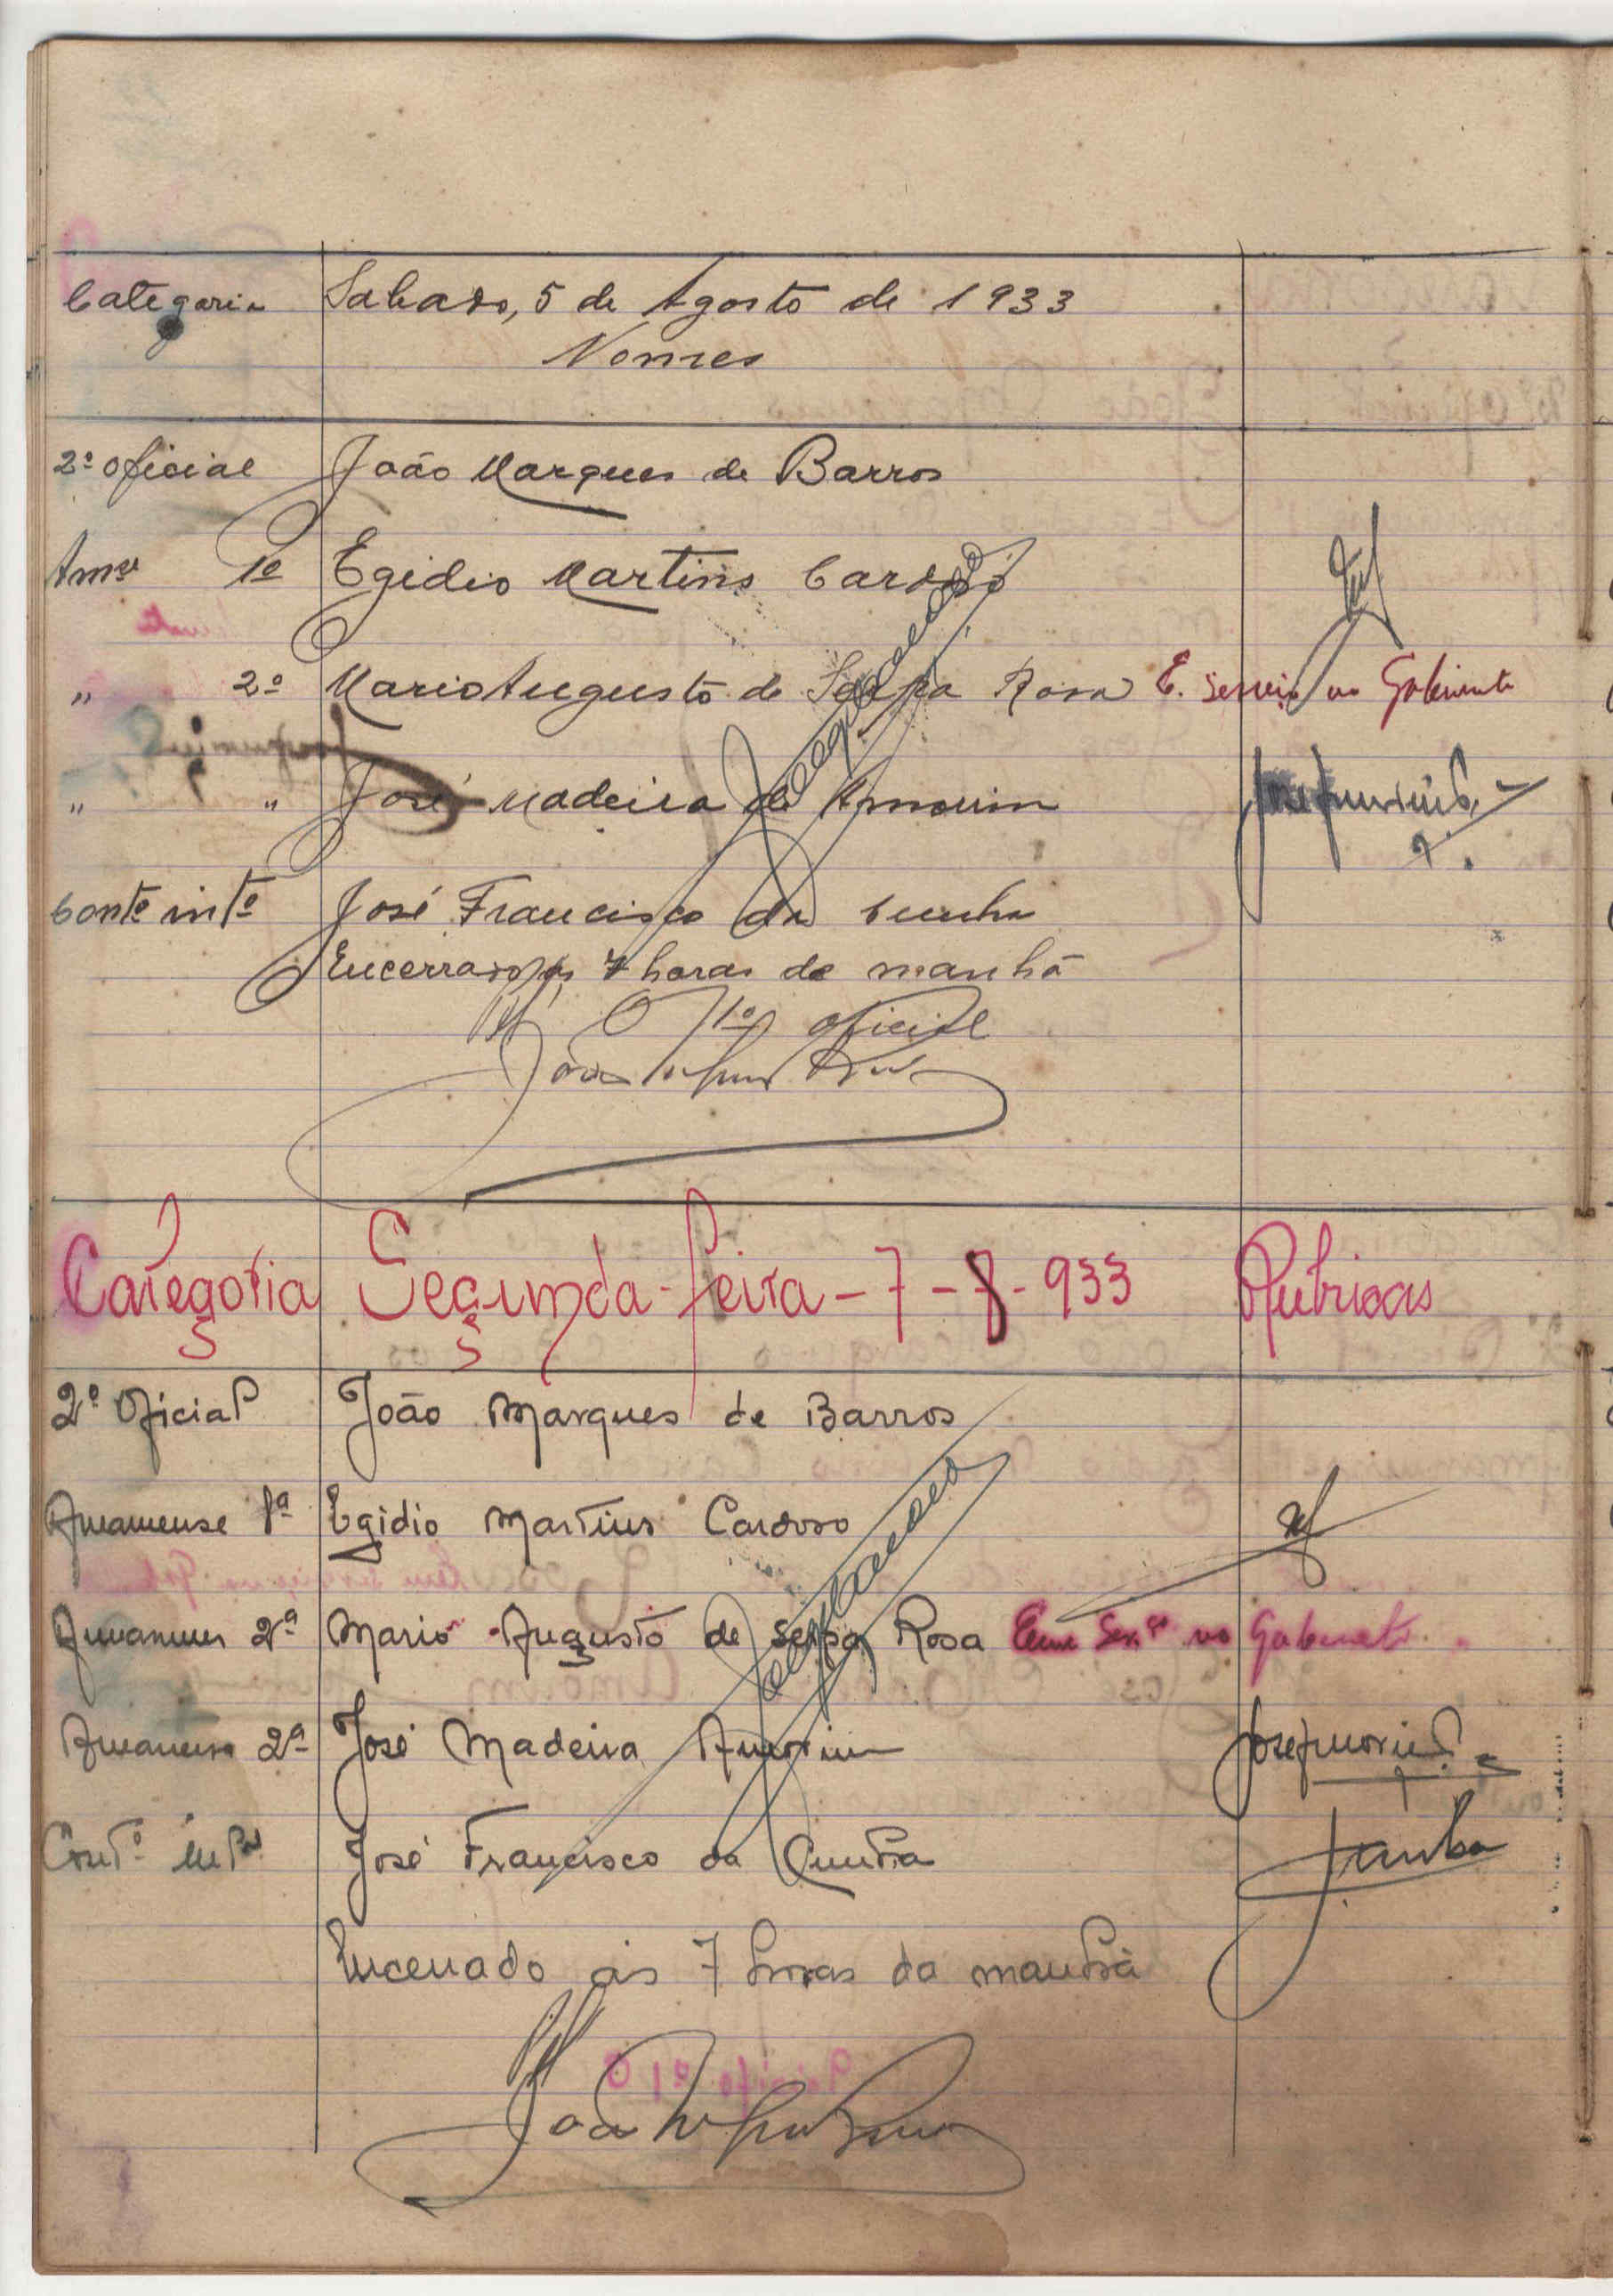 Categoria Sabado, 5 de Agosto de 1933
Nomes
2º oficial João Marques de Barros
Amse 1º Egidio Martins Cardoso
" 2º Mario Augusto de Serpa Rosa E. serviço no Gabinete
" " José Madeira de Amorim
Conto intº José Francisco da Cunha
Encerrado ás 7 horas da manhã
O 1º oficial
Categoria Segunda-feira - 7 - 8 - 933 Rubricas
2º Oficial João Marques de Barros
Amanuense 1ª Egidio Martins Cardoso
Amanuense 2ª Mario Augusto de Serpa Rosa Em Serço no Gabinete
Amanuense 2ª José Madeira Amorim
Contº intº José Francisco da Cunha
Cunha
Encerrado ás 7 horas da manhã